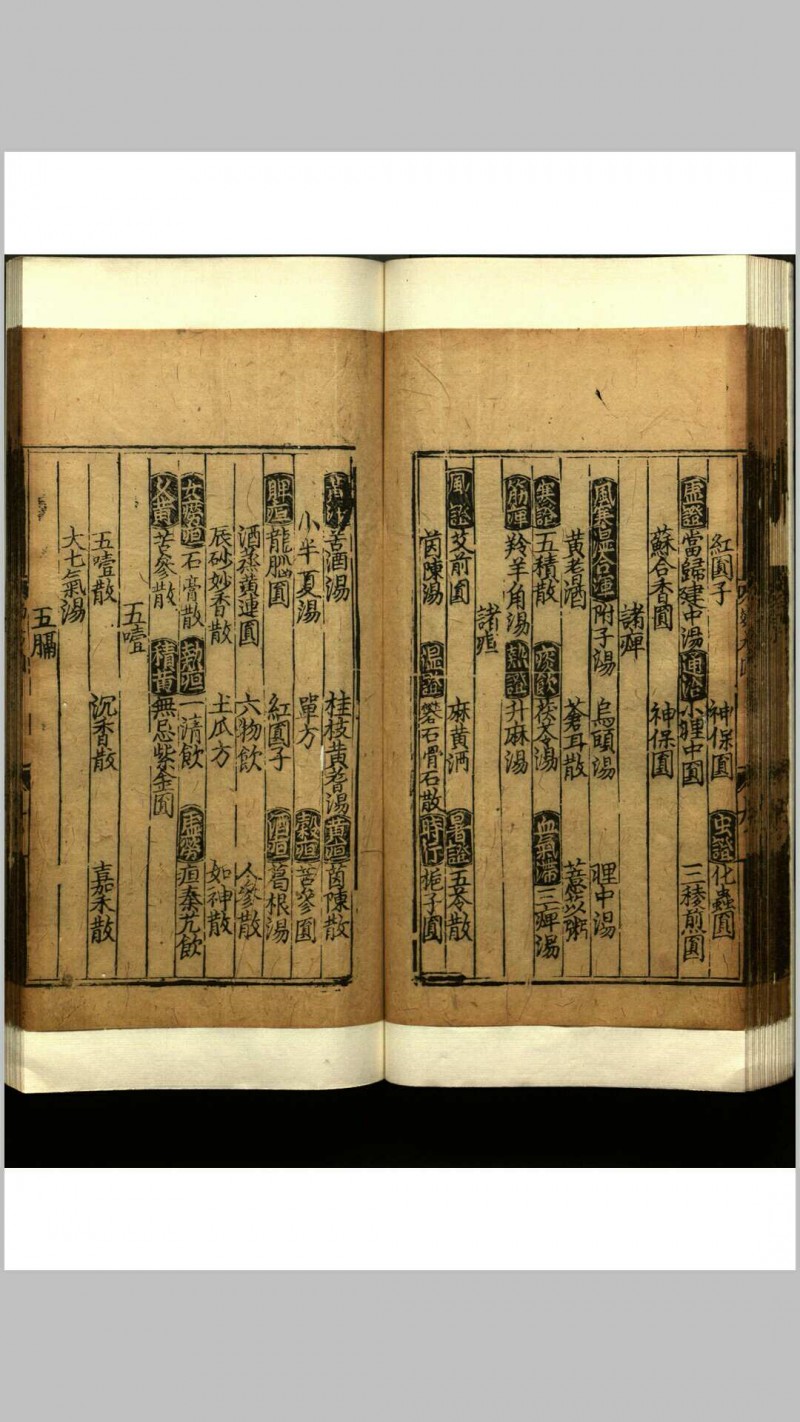 紅圓子 神保圓 虫證 化蟲圓
虛證 當歸建中湯 通治 小理中圓 三稜煎圓
蘇合香圓 神保圓
諸痺
風寒濕合痺 附子湯 烏頭湯 理中湯
黃耆酒 蒼耳散 薏苡粥
寒證 五積散 痰飲 茯苓湯 血氣滯 三痺湯
筋痺 羚羊角湯 熱證 升麻湯
諸疸
風證 艾煎圓 麻黃酒 暑證 五苓散
茵陳湯 濕證 礬石滑石散 時行 梔子圓
黃汗 苦酒湯 桂枝黃耆湯 黃疸 茵陳散
小半夏湯 單方 穀疸 苦參圓
脾疸 龍腦圓 紅圓子 酒疸 葛根湯
酒蒸黃連圓 六物飲 人參散
辰砂妙香散 土瓜方 如神散
女勞疸 石膏散 熱疸 一清飲 虛勞 疸秦艽飲
久黃 苦參散 積黃 無忌紫金圓
五噎
五噎散 沉香散 嘉禾散
大七氣湯
五膈